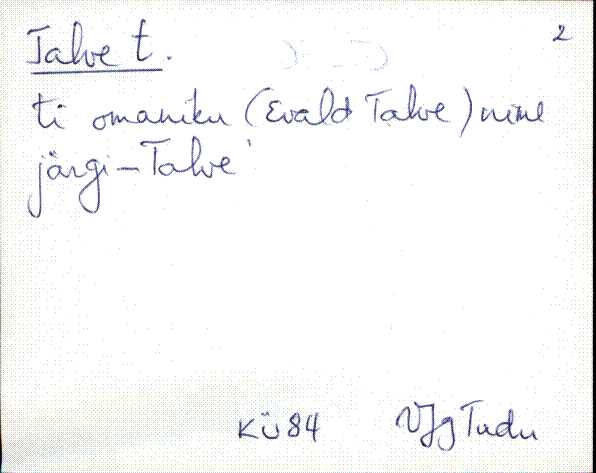 Talve t. 2
ti omaniku (Evald Talve) nime
järgi - Talve'
KÜ 84 VJg Tudu